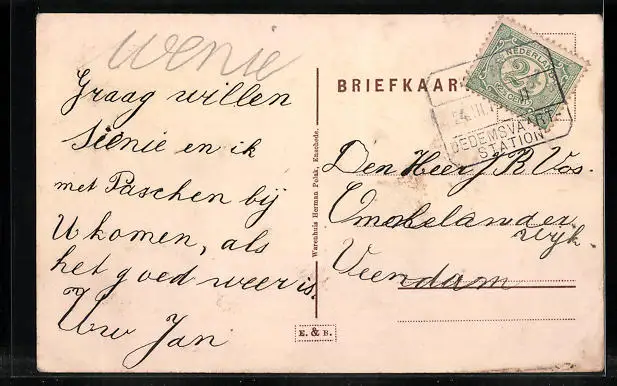 Wenie
Graag willen
Sienie en ik
met Paschen bij
U komen, als
het goed weer is.
Uw Jan
Warenhuis Herman Polak, Enschede.
E. & B.
BRIEFKAAR
NEDERLAND
2½
CENT
DEDEMSVAART-
STATION
Den Heer J B Vos.
Ommelander
wijk
Veendam